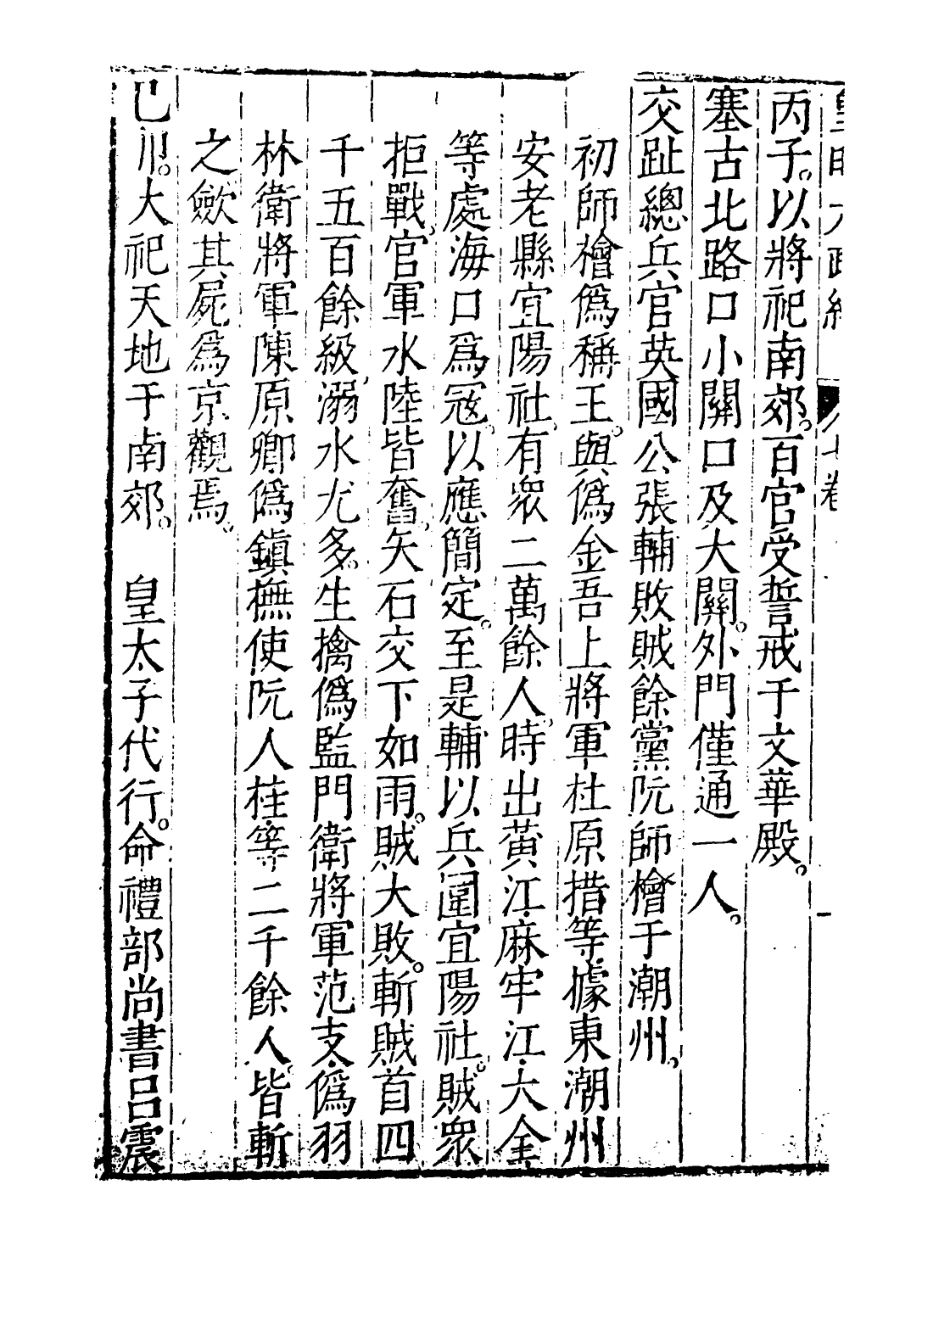 皇明大政紀 八七卷
丙子。以將祀南郊。百官受誓戒于文華殿。
塞古北路口小關口及大關。外門僅通一人。
交趾總兵官英國公張輔敗賊餘黨阮師檜于潮州。
初師檜僞稱王。與僞金吾上將軍杜原措等據東潮州
安老縣宜陽社。有衆二萬餘人。時出黃江麻牢江大全
等處海口爲寇。以應簡定。至是輔以兵圍宜陽社。賊衆
拒戰。官軍水陸皆奮。矢石交下如雨。賊大敗。斬賊首四
千五百餘級。溺水尤多。生擒僞監門衛將軍范支。僞羽
林衛將軍陳原卿僞鎮撫使阮人柱等二千餘人。皆斬
之歛其屍爲京觀焉。
大祀天地于南郊。 皇太子代行。命禮部尚書呂震